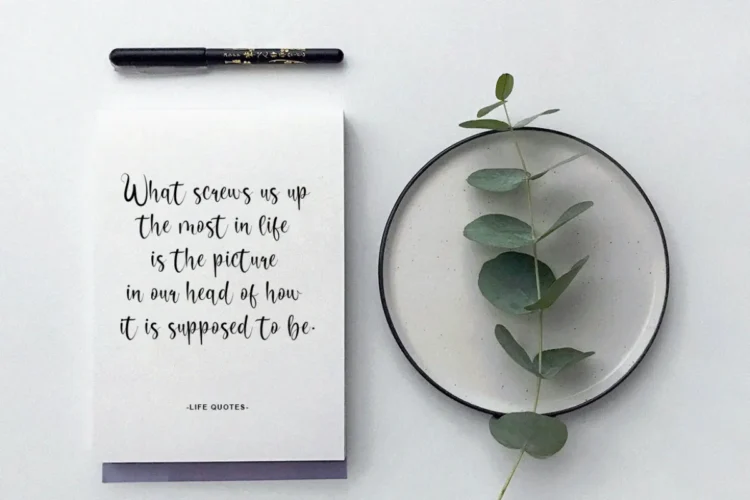 What screws us up
the most in life
is the picture
in our head of how
it is supposed to be.
-LIFE QUOTES-